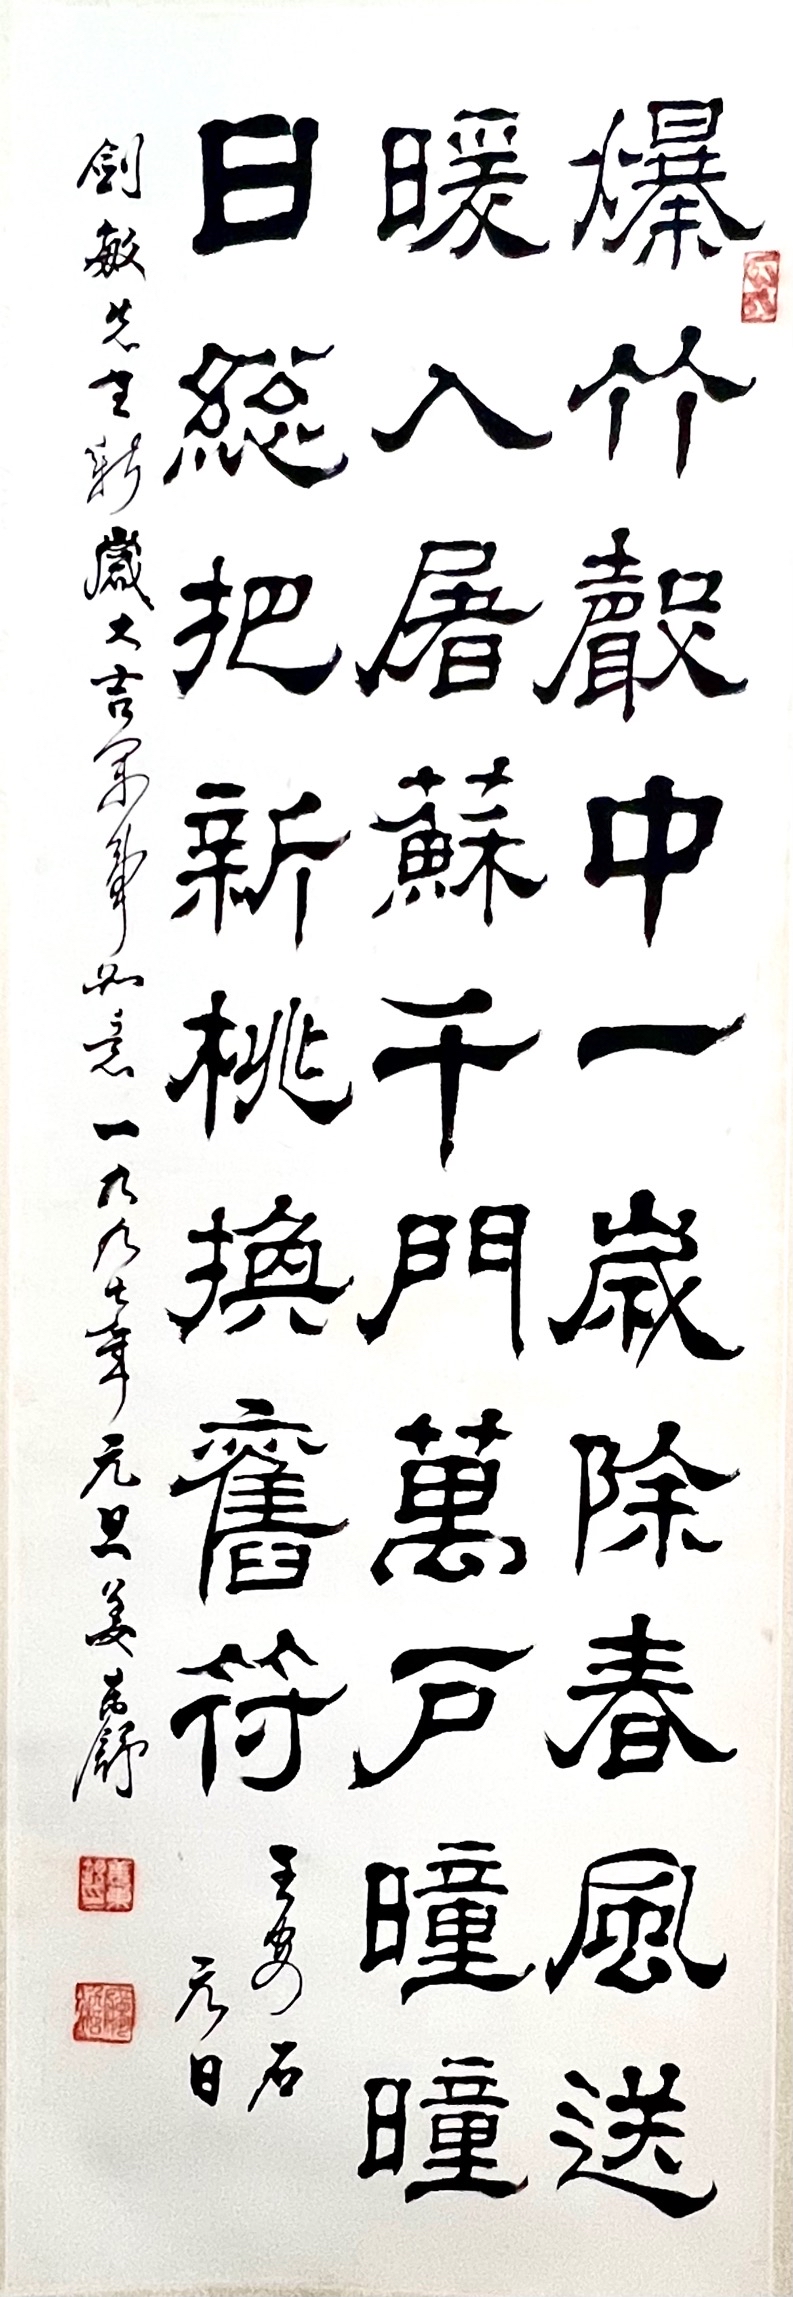 爆竹聲中一歲除春風送
暖入屠蘇千門萬戶曈曈
日總把新桃換舊符
王安石
元日
劍敏先生新歲大吉萬事如意一九九七年元旦姜東舒